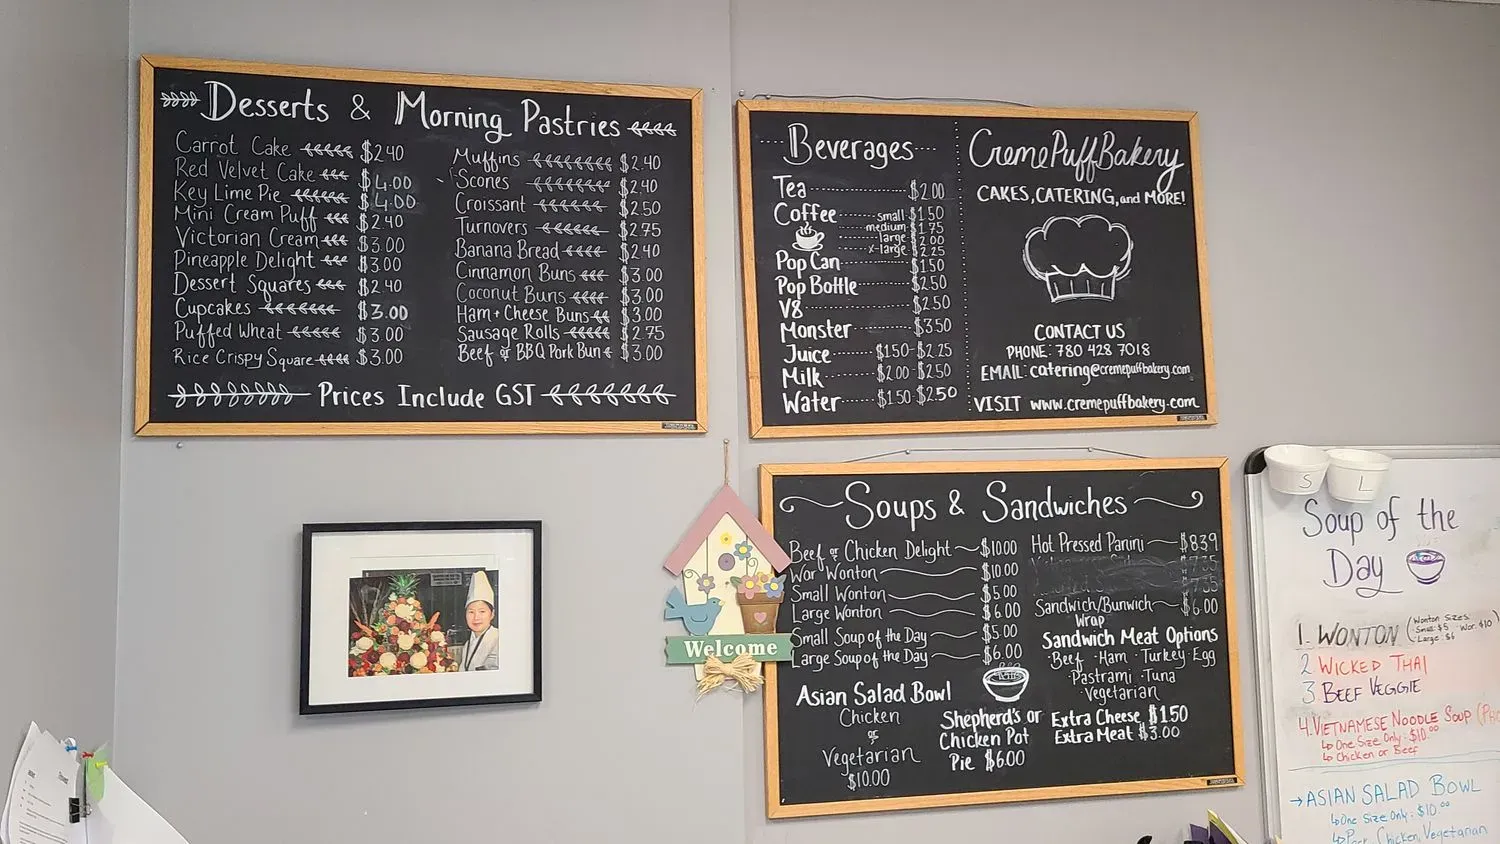 Desserts & Morning Pastries
Carrot Cake $2.40
Red Velvet Cake $4.00
Key Lime Pie $4.00
Mini Cream Puff $2.40
Victorian Cream $3.00
Pineapple Delight $3.00
Dessert Squares $2.40
Cupcakes $3.00
Puffed Wheat $3.00
Rice Crispy Square $3.00
Muffins $2.40
Scones $2.40
Croissant $2.50
Turnovers $2.75
Banana Bread $2.40
Cinnamon Buns $3.00
Coconut Buns $3.00
Ham + Cheese Buns $3.00
Sausage Rolls $2.75
Beef or BBQ Pork Bun $3.00
Prices Include GST
Beverages
Tea $2.00
Coffee small $1.50
medium $1.75
large $2.00
x-large $2.25
Pop Can $1.50
Pop Bottle $2.50
V8 $2.50
Monster $3.50
Juice $1.50-$2.25
Milk $2.00-$2.50
Water $1.50-$2.50
CremePuffBakery
CAKES, CATERING, and MORE!
CONTACT US
PHONE: 780 428 7018
EMAIL: catering@cremepuffbakery.com
VISIT www.cremepuffbakery.com
Soups & Sandwiches
Beef or Chicken Delight $10.00
Wor Wonton $10.00
Small Wonton $5.00
Large Wonton $6.00
Small Soup of the Day $5.00
Large Soup of the Day $6.00
Asian Salad Bowl
Chicken
or
Vegetarian
$10.00
Shepherd's or
Chicken Pot
Pie $6.00
Hot Pressed Panini $8.39
Sandwich/Bunwich $6.00
Wrap
Sandwich Meat Options
·Beef ·Ham ·Turkey ·Egg
·Pastrami ·Tuna
·Vegetarian
Extra Cheese $1.50
Extra Meat $3.00
Welcome
S
L
Soup of the
Day
1. WONTON (Wonton Sizes:
Small: $5 Wor: $10
Large: $6
2 WICKED THAI
3 BEEF VEGGIE
4. VIETNAMESE NOODLE SOUP
↳ One Size Only: $10.00
↳ Chicken or Beef
→ ASIAN SALAD BOWL
↳ One Size Only: $10.00
Chicken, Vegetarian